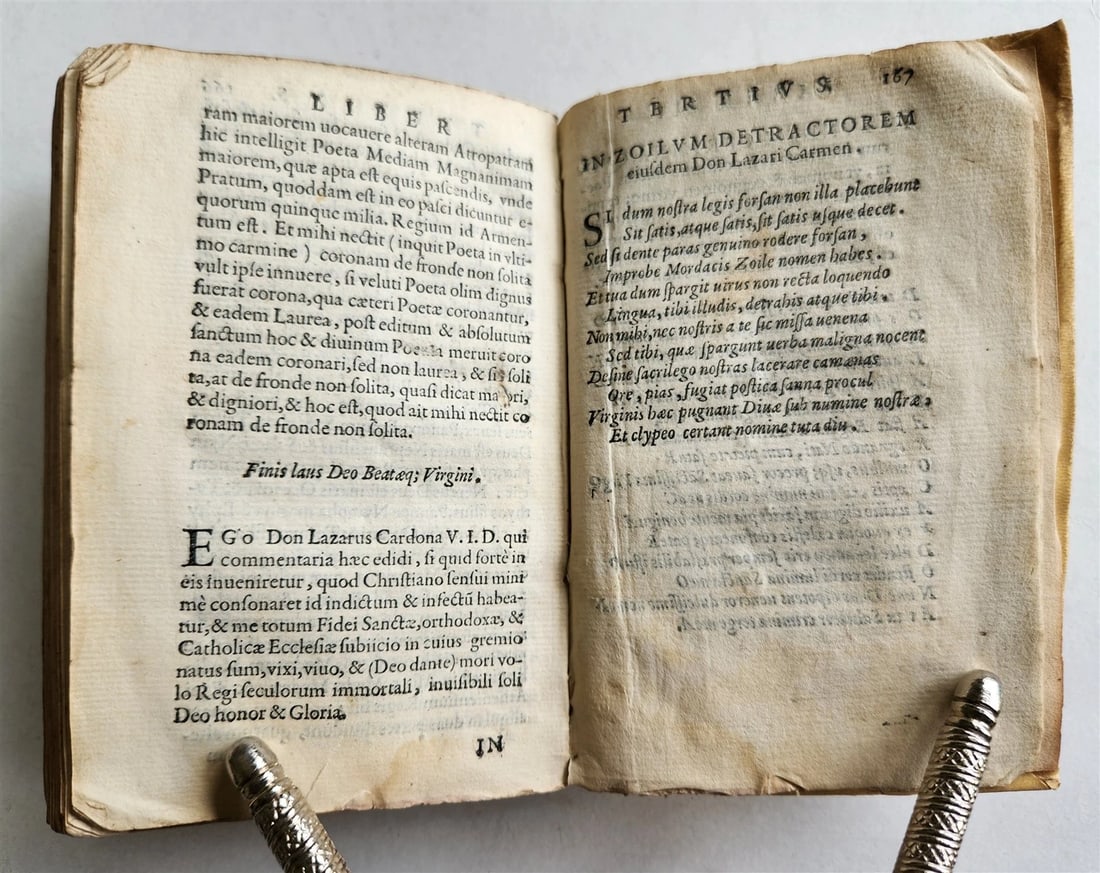 LIBER
ram maiorem uocauere alteram Atropatiam
hic intelligit Poeta Mediam Magnanimam
maiorem, quæ apta est equis pascendis, vnde
Pratum, quoddam est in eo pasci dicuntur e-
quorum quinque milia. Regium id Armen-
tum est. Et mihi nectit (inquit Poeta in vlti-
mo carmine) coronam de fronde non solita
vult ipse innuere, si veluti Poeta olim dignus
fuerat corona, qua cæteri Poetæ coronantur,
& eadem Laurea, post editum & absolutum
sanctum hoc & diuinum meruit coro
na eadem coronari, sed non laurea, & si soli
ta, at de fronde non solita, quasi dicat maiori,
& digniori, & hoc est, quod ait mihi nectit co
ronam de fronde non solita.
Finis laus Deo Beatæq; Virgini.
EGO Don Lazarus Cardona V. I. D. qui
commentaria hæc edidi, si quid fortè in
eis inueniretur, quod Christiano sensui mini
mè consonaret id indictum & infectũ habea-
tur, & me totum Fidei Sanctæ, orthodoxæ, &
Catholicæ Ecclesiæ subiicio in cuius gremio
natus sum, vixi, viuo, & (Deo dante) mori vo-
lo Regi seculorum immortali, inuisibili soli
Deo honor & Gloria.
IN
TERTIVS. 167
IN ZOILVM DETRACTOREM
eiusdem Don Lazari Carmen.
SI dum nostra legis forsan non illa placebunt
Sit satis, atque satis, sit satis usque decet.
Sed si dente paras genuino rodere forsan,
Improbe Mordacis Zoile nomen habes.
Et tua dum spargit uirus non recta loquendo
Lingua, tibi illudis, detrahis atque tibi.
Non mihi, nec nostris a te sic missa uenena
Sed tibi, quæ spargunt uerba maligna nocent
Desine sacrilego nostras lacerare camœnas
Ore, pias, fugiat postica sanna procul
Virginis hæc pugnant Diuæ sub numine nostræ,
Et clypeo certant nomine tuta diu.